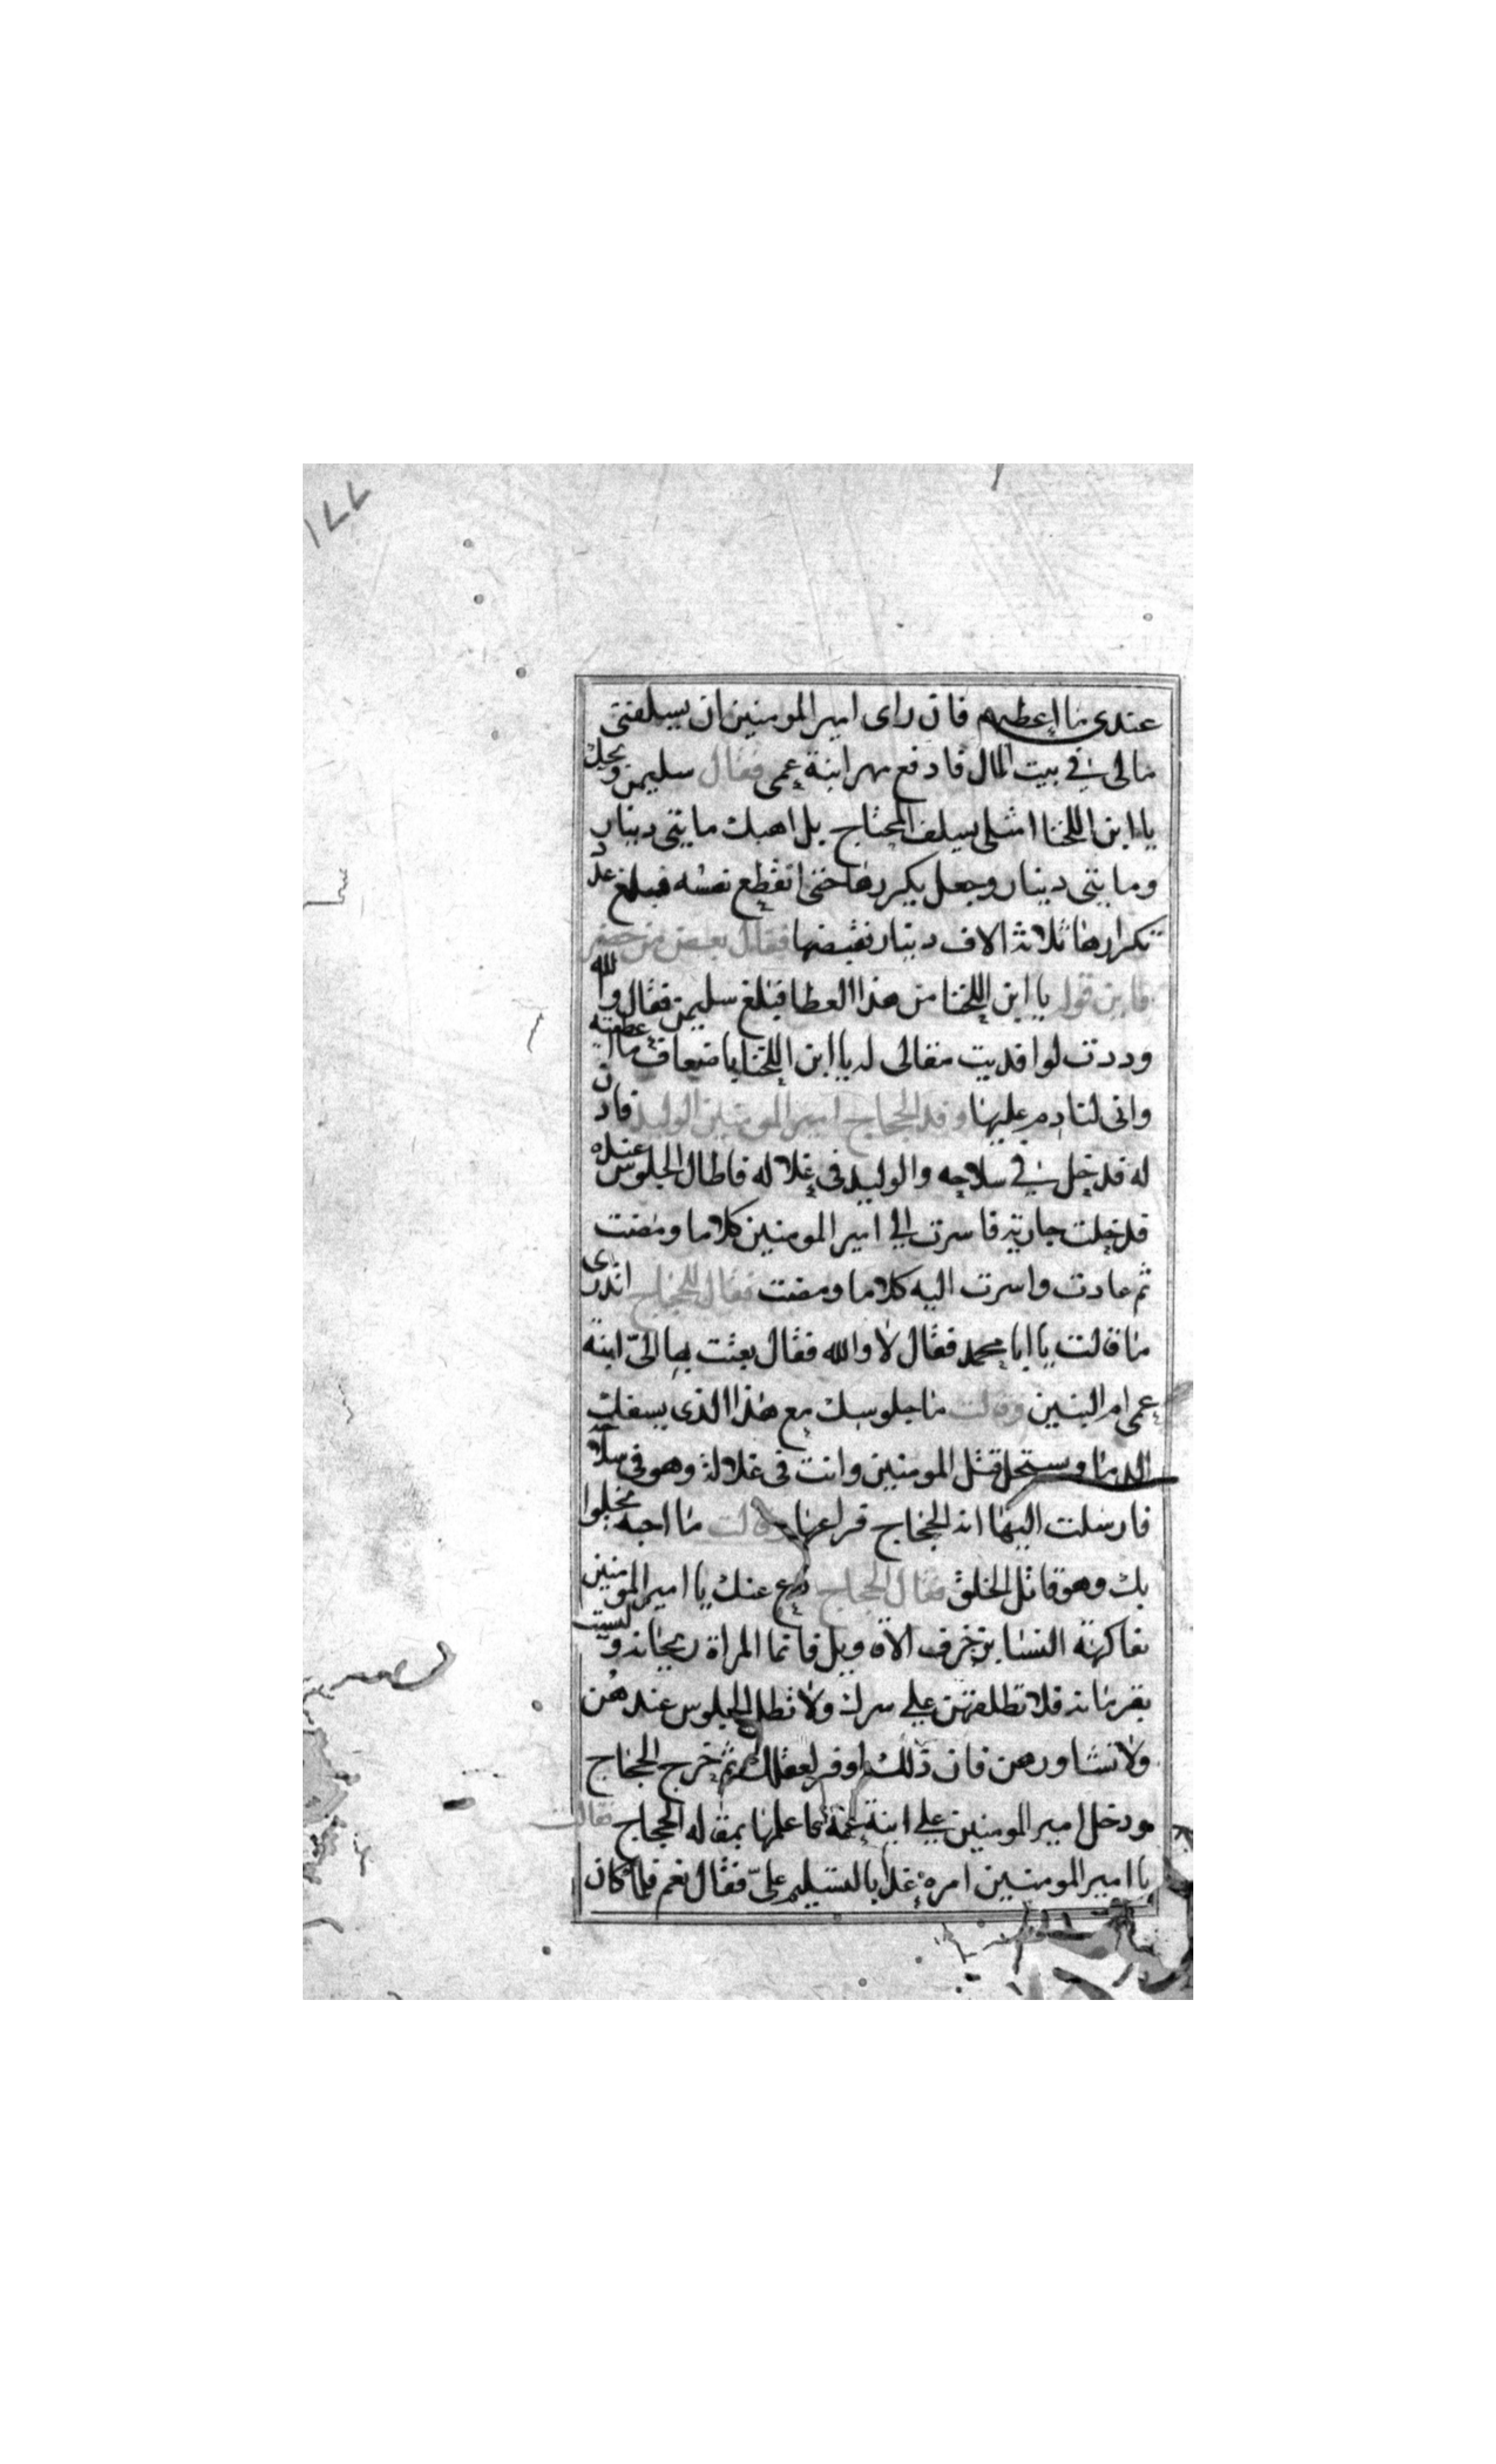 ١٧٧
عندى ما اعطيهم فان راى امير المومنين ان يسلفنى
مالى فى بيت المال فادفع مهر ابنة عمى فقال سليمن ويحك
يا ابن اللخنا امثلى يسلف المحتاج بل اهبك مايتى دينار
ومايتى دينار وجعل يكررها حتى انقطع نفسه فبلغ عدد
تكرارها ثلاثة الاف دينار فقبضها فقال بعض من حضر
فاين قوله يا ابن اللخنا من هذا العطا فبلغ سليمن فقال والله
وددت لو افديت مقالى له يا ابن اللخنا باضعاف ما اعطيته
وانى لنادم عليها وفد الحجاج امير المومنين الوليد فاذن
له فدخل فى سلاحه والوليد فى غلاله فاطال الجلوس عنده
فدخلت جارية فاسرت الى امير المومنين كلاما ومضت
ثم عادت واسرت اليه كلاما ومضت فقال للحجاج اتدرى
ما قالت يا ابا محمد فقال لا والله فقال بعثت بها الىّ ابنة
عمى ام البنين وقالت ما جلوسك مع هذا الذى يسفك
الدما ويستحل قتل المومنين وانت فى غلالة وهو فى سلاحه
فارسلت اليها انه الحجاج فراعها وقالت ما احبه يخلوا
بك وهو قاتل الخلق فقال الحجاج دع عنك يا امير المومنين
مفاكهة النسا بزخرف الاقاويل فانما المراة ريحانه وليست
بقهرمانه فلا تطلعهن على سرك ولا تطل الجلوس عندهن
ولا تشاورهن فان ذلك اوفر لعقلك ثم خرج الحجاج
ودخل امير المومنين على ابنة عمه فاعلمها بمقاله الحجاج فقالت
يا امير المومنين امره غدا بالتسليم علىّ فقال نعم فلما كان